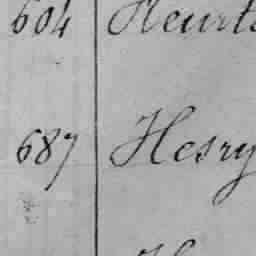 604 Heurt
687 Hesry